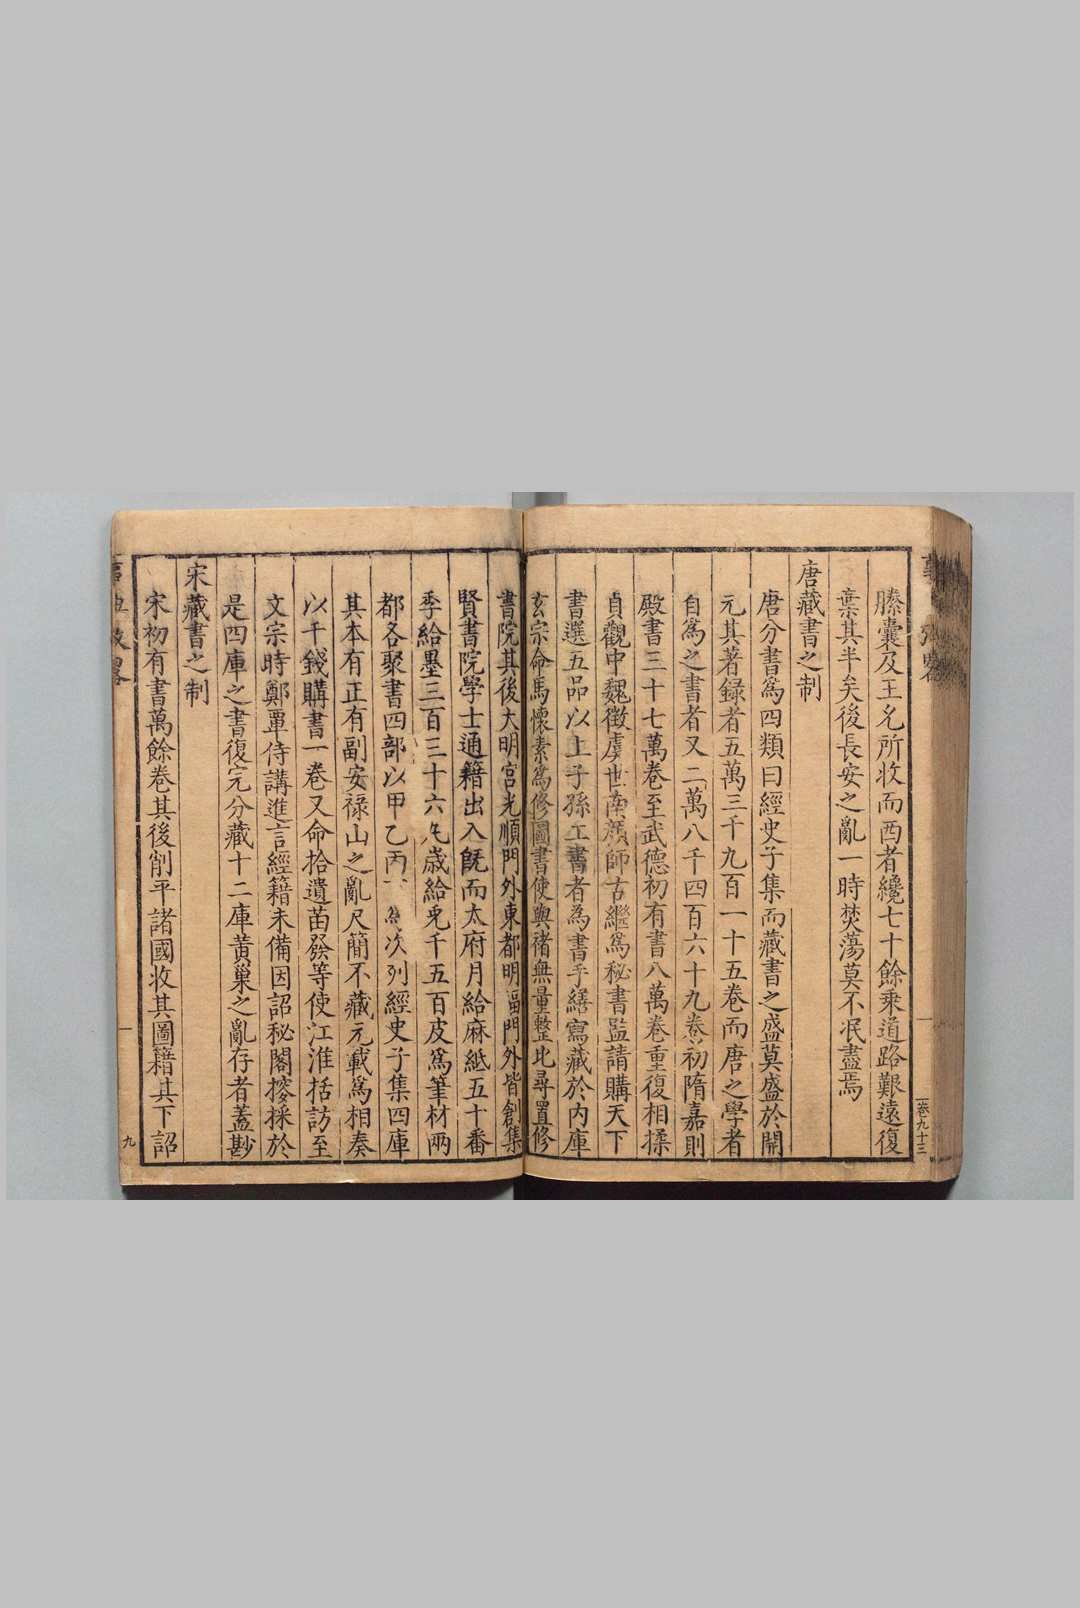 縢囊及王允所收而西者纔七十餘乘道路艱遠復
棄其半矣後長安之亂一時焚蕩莫不泯盡焉
唐藏書之制
唐分書爲四類曰經史子集而藏書之盛莫盛於開
元其著録者五萬三千九百一十五卷而唐之學者
自爲之書者又二萬八千四百六十九卷初隋嘉則
殿書三十七萬卷至武德初有書八萬卷重復相揉
貞觀中魏徵虞世南顔師古繼爲秘書監請購天下
書選五品以上子孫工書者為書手繕寫藏於内庫
玄宗命馬懷素爲修圖書使與褚無量整比尋置修
書院其後大明宮光順門外東都明福門外皆創集
賢書院學士通籍出入旣而太府月給麻紙五十番
季給墨三百三十六丸歲給兎千五百皮爲筆材兩
都各聚書四部以甲乙丙爲次列經史子集四庫
其本有正有副安禄山之亂尺簡不藏元載爲相奏
以千錢購書一卷又命拾遺苗發等使江淮括訪至
文宗時鄭覃侍講進言經籍未備因詔秘閣搜採於
是四庫之書復完分藏十二庫黄巢之亂存者蓋尠
宋藏書之制
宋初有書萬餘卷其後削平諸國收其圖籍其下詔
卷九十三
九